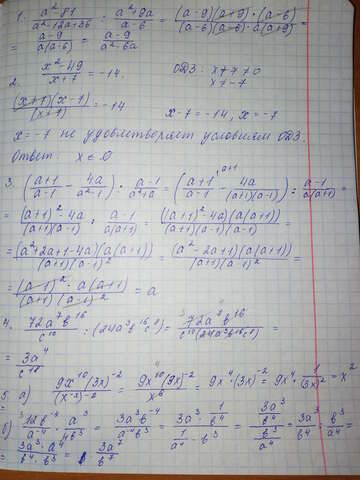 1. (a²-81)/(a²-12a+36) : (a²+9a)/(a-6) = ((a-9)(a+9)·(a-6))/((a-6)(a-6)·a(a+9)) =
= (a-9)/(a(a-6)) = (a-9)/(a²-6a)
2. (x²-49)/(x+7) = -14.   ОДЗ: x+7≠0
x≠-7
((x+7)(x-7))/(x+7) = -14   x-7=-14, x=-7
x=-7 не удовлетворяет условиям ОДЗ.
Ответ: x∈∅
3. ((a+1)/(a-1) - 4a/(a²-1)) : (a-1)/(a²+a) = ((a+1)/(a-1) - 4a/((a+1)(a-1))) : (a-1)/(a(a+1)) =
= ((a+1)²-4a)/((a+1)(a-1)) : (a-1)/(a(a+1)) = (((a+1)²-4a)(a(a+1)))/((a+1)(a-1)(a-1)) =
= ((a²+2a+1-4a)(a(a+1)))/((a+1)(a-1)²) = ((a²-2a+1)(a(a+1)))/((a+1)(a-1)²) =
= ((a-1)²·a(a+1))/((a+1)(a-1)²) = a
4. 72a⁷b¹⁶/c¹⁰ : (24a³b¹⁶c⁸) = 72a⁷b¹⁶/(c¹⁰(24a³b¹⁶c⁸)) =
= 3a⁴/c¹⁸
5. а) 9x¹⁰(3x)⁻²/(x⁻³)⁻² = 9x¹⁰(3x)⁻²/x⁶ = 9x⁴·(3x)⁻² = 9x⁴·1/(3x)² = x²
б) 12b⁻⁴/a⁻⁴ · a³/4b³ = 3a³b⁻⁴/a⁻⁴b³ = (3a³·1/b⁴)/(1/a⁴·b³) = (3a³/b⁴)/(b³/a⁴) = 3a³/b⁴ : b³/a⁴ =
= 3a³/b⁴ · a⁴/b³ = 3a⁷/b⁷